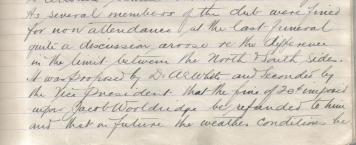 As several members of the club were fined
for non attendance at the last funeral
quite a discussion arose re the difference
in the limit between the North & South sides.
It was proposed by Dr White and Seconded by
the Vice President that the fine of 25¢ imposed
upon Jacob Wooldridge be refunded to him
and that in future the weather conditions be